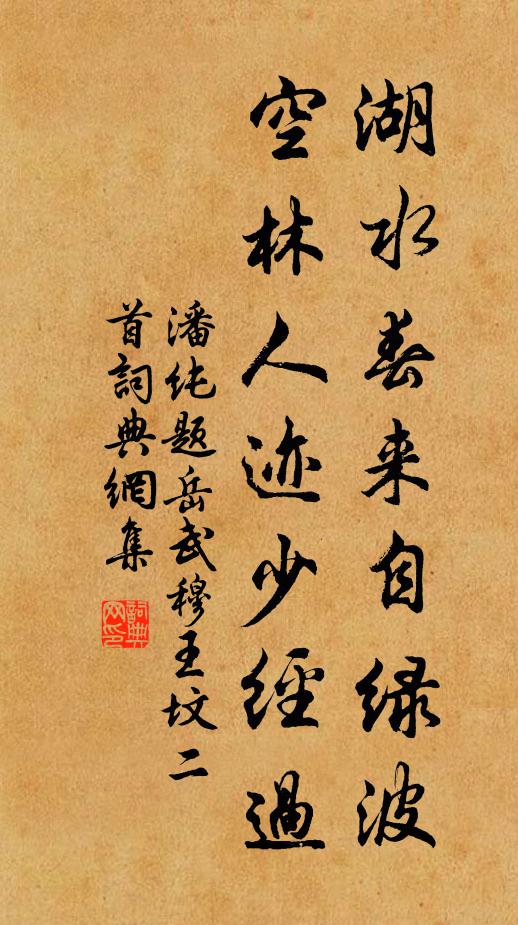 湖水春来自绿波
空林人迹少經過
潘純题岳武穆王坟二
首詞典網集
詞典網印